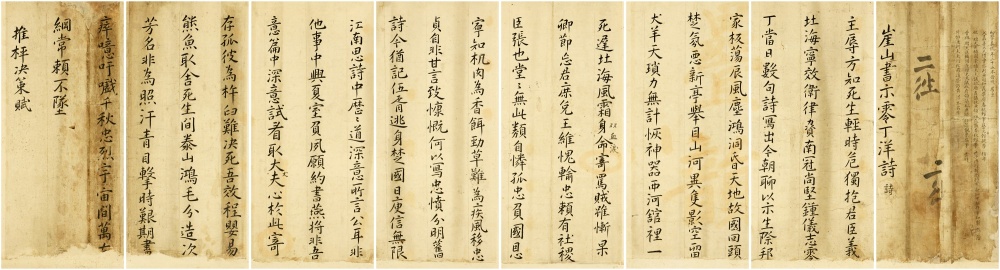 崖山書示零丁洋詩 詩
主辱方知死生輕時危獨抱君臣義
北海寧效衛律貪南冠尚堅鍾儀志零
丁當日數句詩寫出今朝聊以示生際邦
家板蕩辰風塵鴻洞昏天地故國回頭
楚氛惡新亭舉目山河異隻影空留
犬羊天瑣力無計恢神器西河舘裡一
死遲北海風霜身命寄罵賊雖慚杲
卿節忘君庶免王維愧輸忠賴有社稷
臣張也堂々無此類自憐孤忠負國恩
寧知机肉為香餌勁草難為疾風移忠
貞自非甘言孜慷慨何以寫忠憤分明舊
詩今猶記伍胥逃身楚國日庾信無限
江南思詩中歷々道深意所言公耳非
他事中興夏室負夙願約書燕將非吾
意篇中深意試看取丈夫心於此寄
存孤彼為杵臼難決死吾效程嬰易
熊魚取舍死生間泰山鴻毛分造次
芳名非為照汗青目擊時艱期書
瘁噫吁戲千秋忠烈宇宙間萬古
綱常賴不墜
推枰決策賦